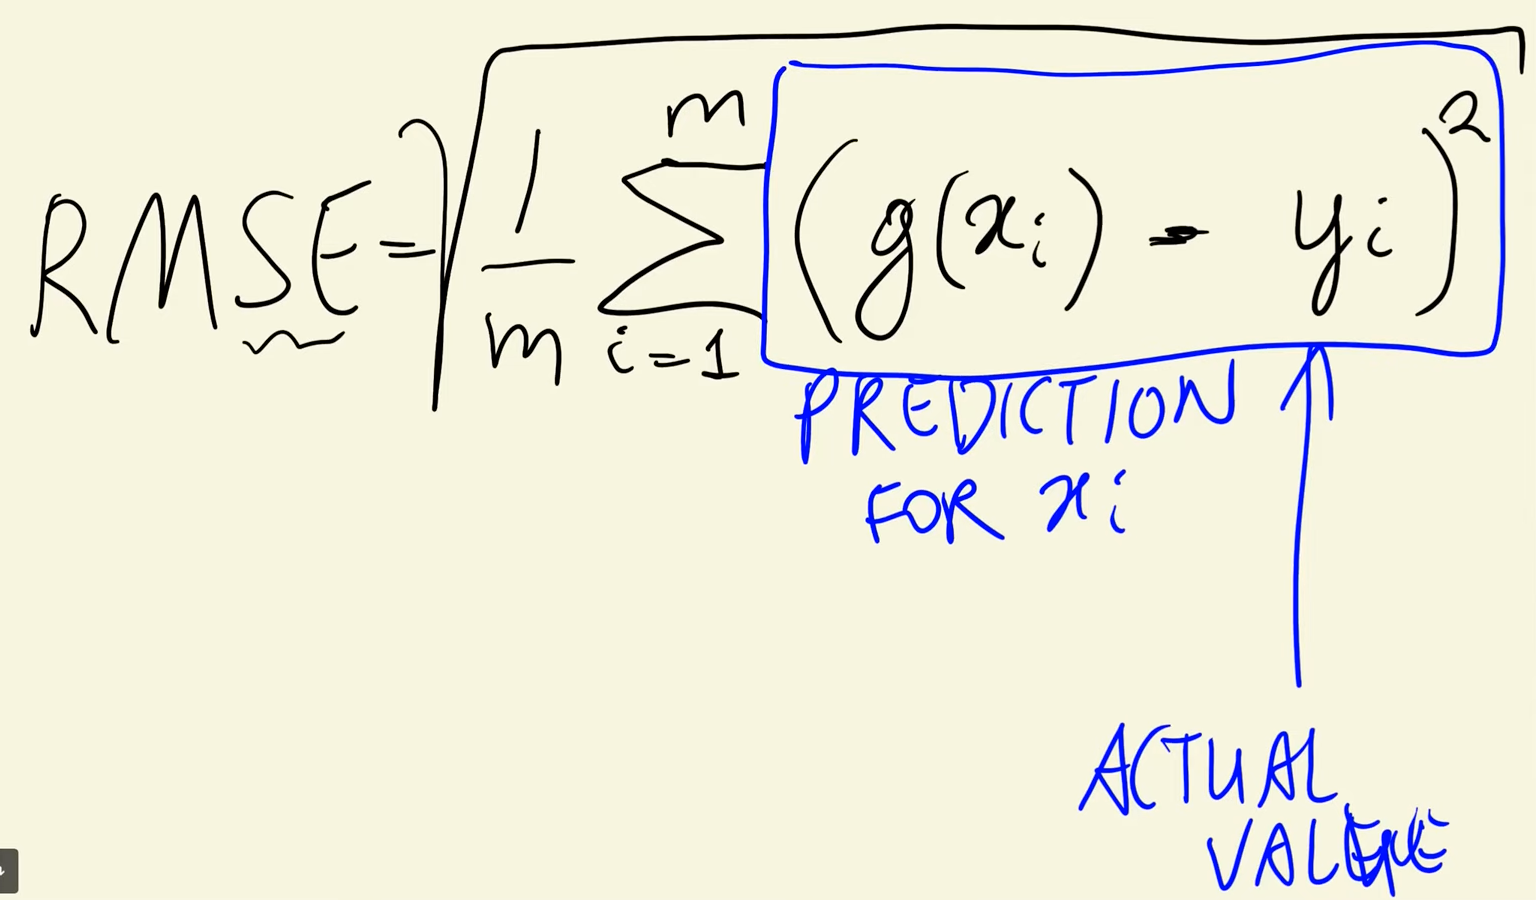 RMSE = √ 1/m Σ i=1 m (g(xi) - yi)²
PREDICTION
FOR xi
ACTUAL